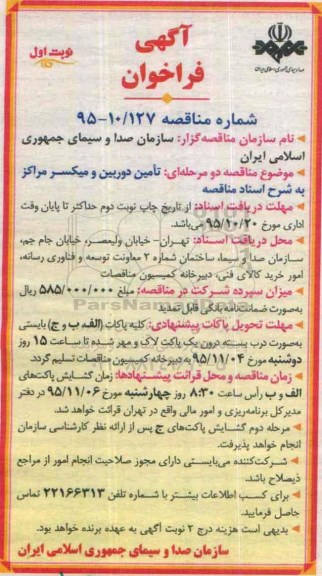 آگهی
فراخوان
نوبت اول
صدا و سیمای جمهوری اسلامی ایران
شماره مناقصه ۱۰/۱۲۷-۹۵
نام سازمان مناقصه‌گزار: سازمان صدا و سیمای جمهوری
اسلامی ایران
موضوع مناقصه دو مرحله‌ای: تأمین دوربین و میکسر مراکز
به شرح اسناد مناقصه
مهلت دریافت اسناد: از تاریخ چاپ نوبت دوم حداکثر تا پایان وقت
اداری مورخ ۹۵/۱۰/۲۰ می‌باشد.
محل دریافت اسناد: تهران- خیابان ولیعصر، خیابان جام جم،
سازمان صدا و سیما، ساختمان شماره ۲ معاونت توسعه و فناوری رسانه،
امور خرید کالای فنی، دبیرخانه کمیسیون مناقصات
میزان سپرده شرکت در مناقصه: مبلغ ۵۸۵/۰۰۰/۰۰۰ ریال
به‌صورت ضمانت‌نامه بانکی قابل تمدید
مهلت تحویل پاکات پیشنهادی: کلیه پاکات (الف، ب و ج) بایستی
به‌صورت درب بسته درون یک پاکت لاک و مهر شده تا ساعت ۱۵ روز
دوشنبه مورخ ۹۵/۱۱/۰۴ به دبیرخانه کمیسیون مناقصات تسلیم گردد.
زمان مناقصه و محل قرائت پیشنهادها: زمان گشایش پاکت‌های
الف و ب رأس ساعت ۸:۳۰ روز چهارشنبه مورخ ۹۵/۱۱/۰۶ در دفتر
مدیرکل برنامه‌ریزی و امور مالی واقع در تهران قرائت خواهد شد.
مرحله دوم گشایش پاکت‌های ج پس از ارائه نظر کارشناسی سازمان
انجام خواهد پذیرفت.
شرکت‌کننده می‌بایستی دارای مجوز صلاحیت انجام امور از مراجع
ذیصلاح باشد.
برای کسب اطلاعات بیشتر با شماره تلفن ۲۲۱۶۶۳۱۳ تماس
حاصل فرمایید.
بدیهی است هزینه درج ۲ نوبت آگهی به عهده برنده خواهد بود.
سازمان صدا و سیمای جمهوری اسلامی ایران